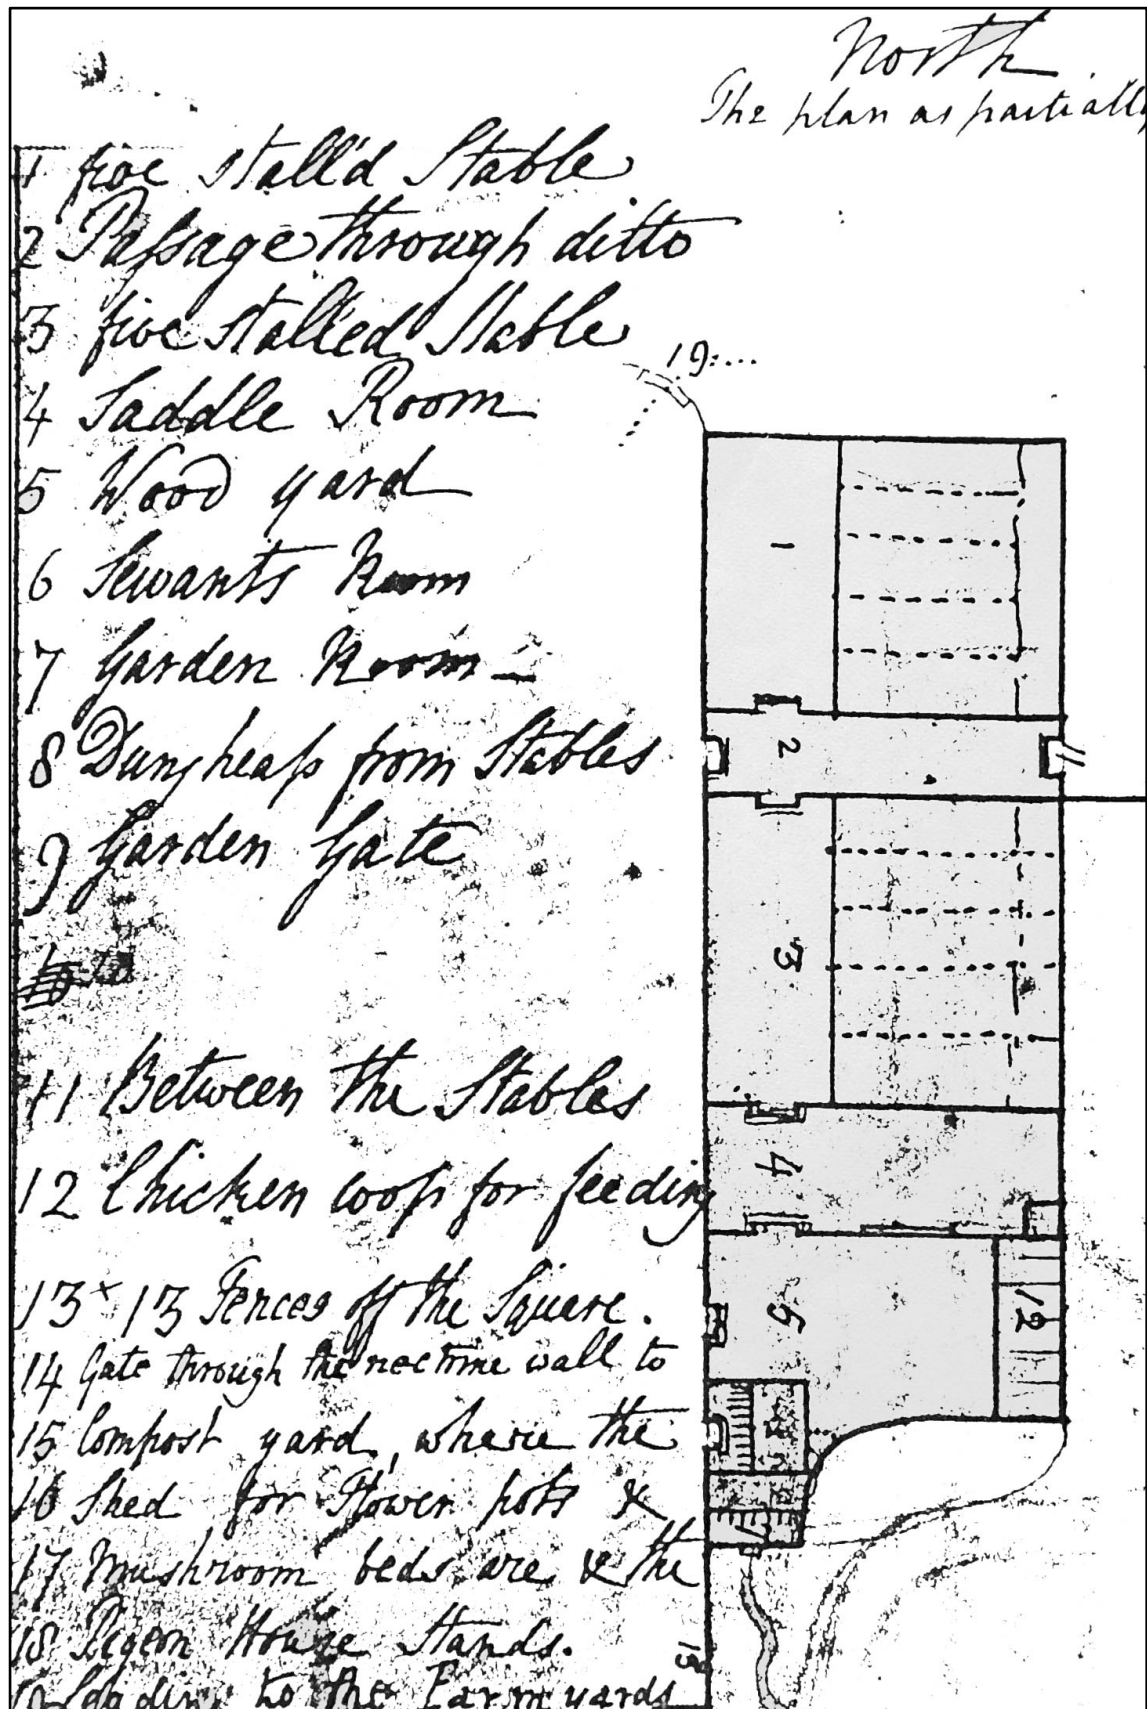 North
The plan as partially
1 five stall'd Stable
2 Passage through ditto
3 five stalled Stable
4 Saddle Room
5 Wood yard
6 Servants Room
7 Garden Room
8 Dungheap from Stables
9 Garden Gate
11 Between the Stables
12 Chicken coops for feeding
13 x 13 Fences off the Square.
14 Gate through the nectrine wall to
15 Compost yard, where the
16 Shed for Flower pots &
17 Mushroom beds are & the
18 Pigeon House Stands.
19 Leading to the Farm yards
19:...
1
2
3
4
5
12
13